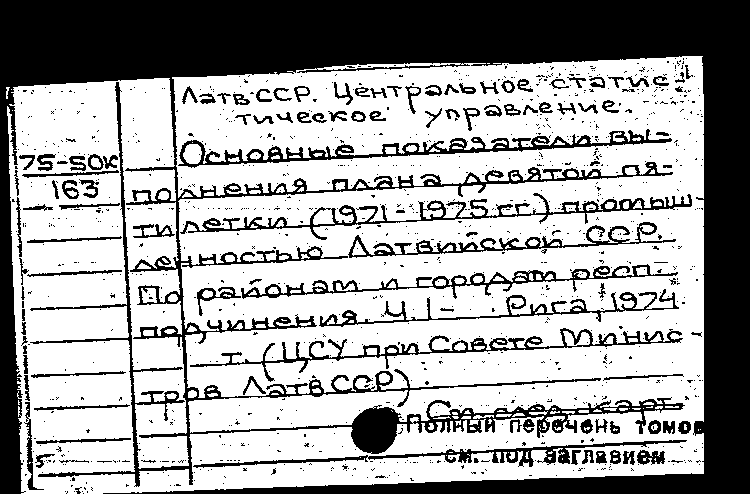 Латв ССР. Центральное статис-
тическое управление.
75-50К
163
Основные показатели вы-
полнения плана девятой пя-
тилетки (1971-1975 гг.) промыш-
ленностью Латвийской ССР.
По районам и городам респ.
подчинения. Ч. 1- . Рига, 1974.
т. (ЦСУ при Совете Минис-
тров Латв ССР).
См. след. карт.
Полный перечень томов
см. под заглавием
5